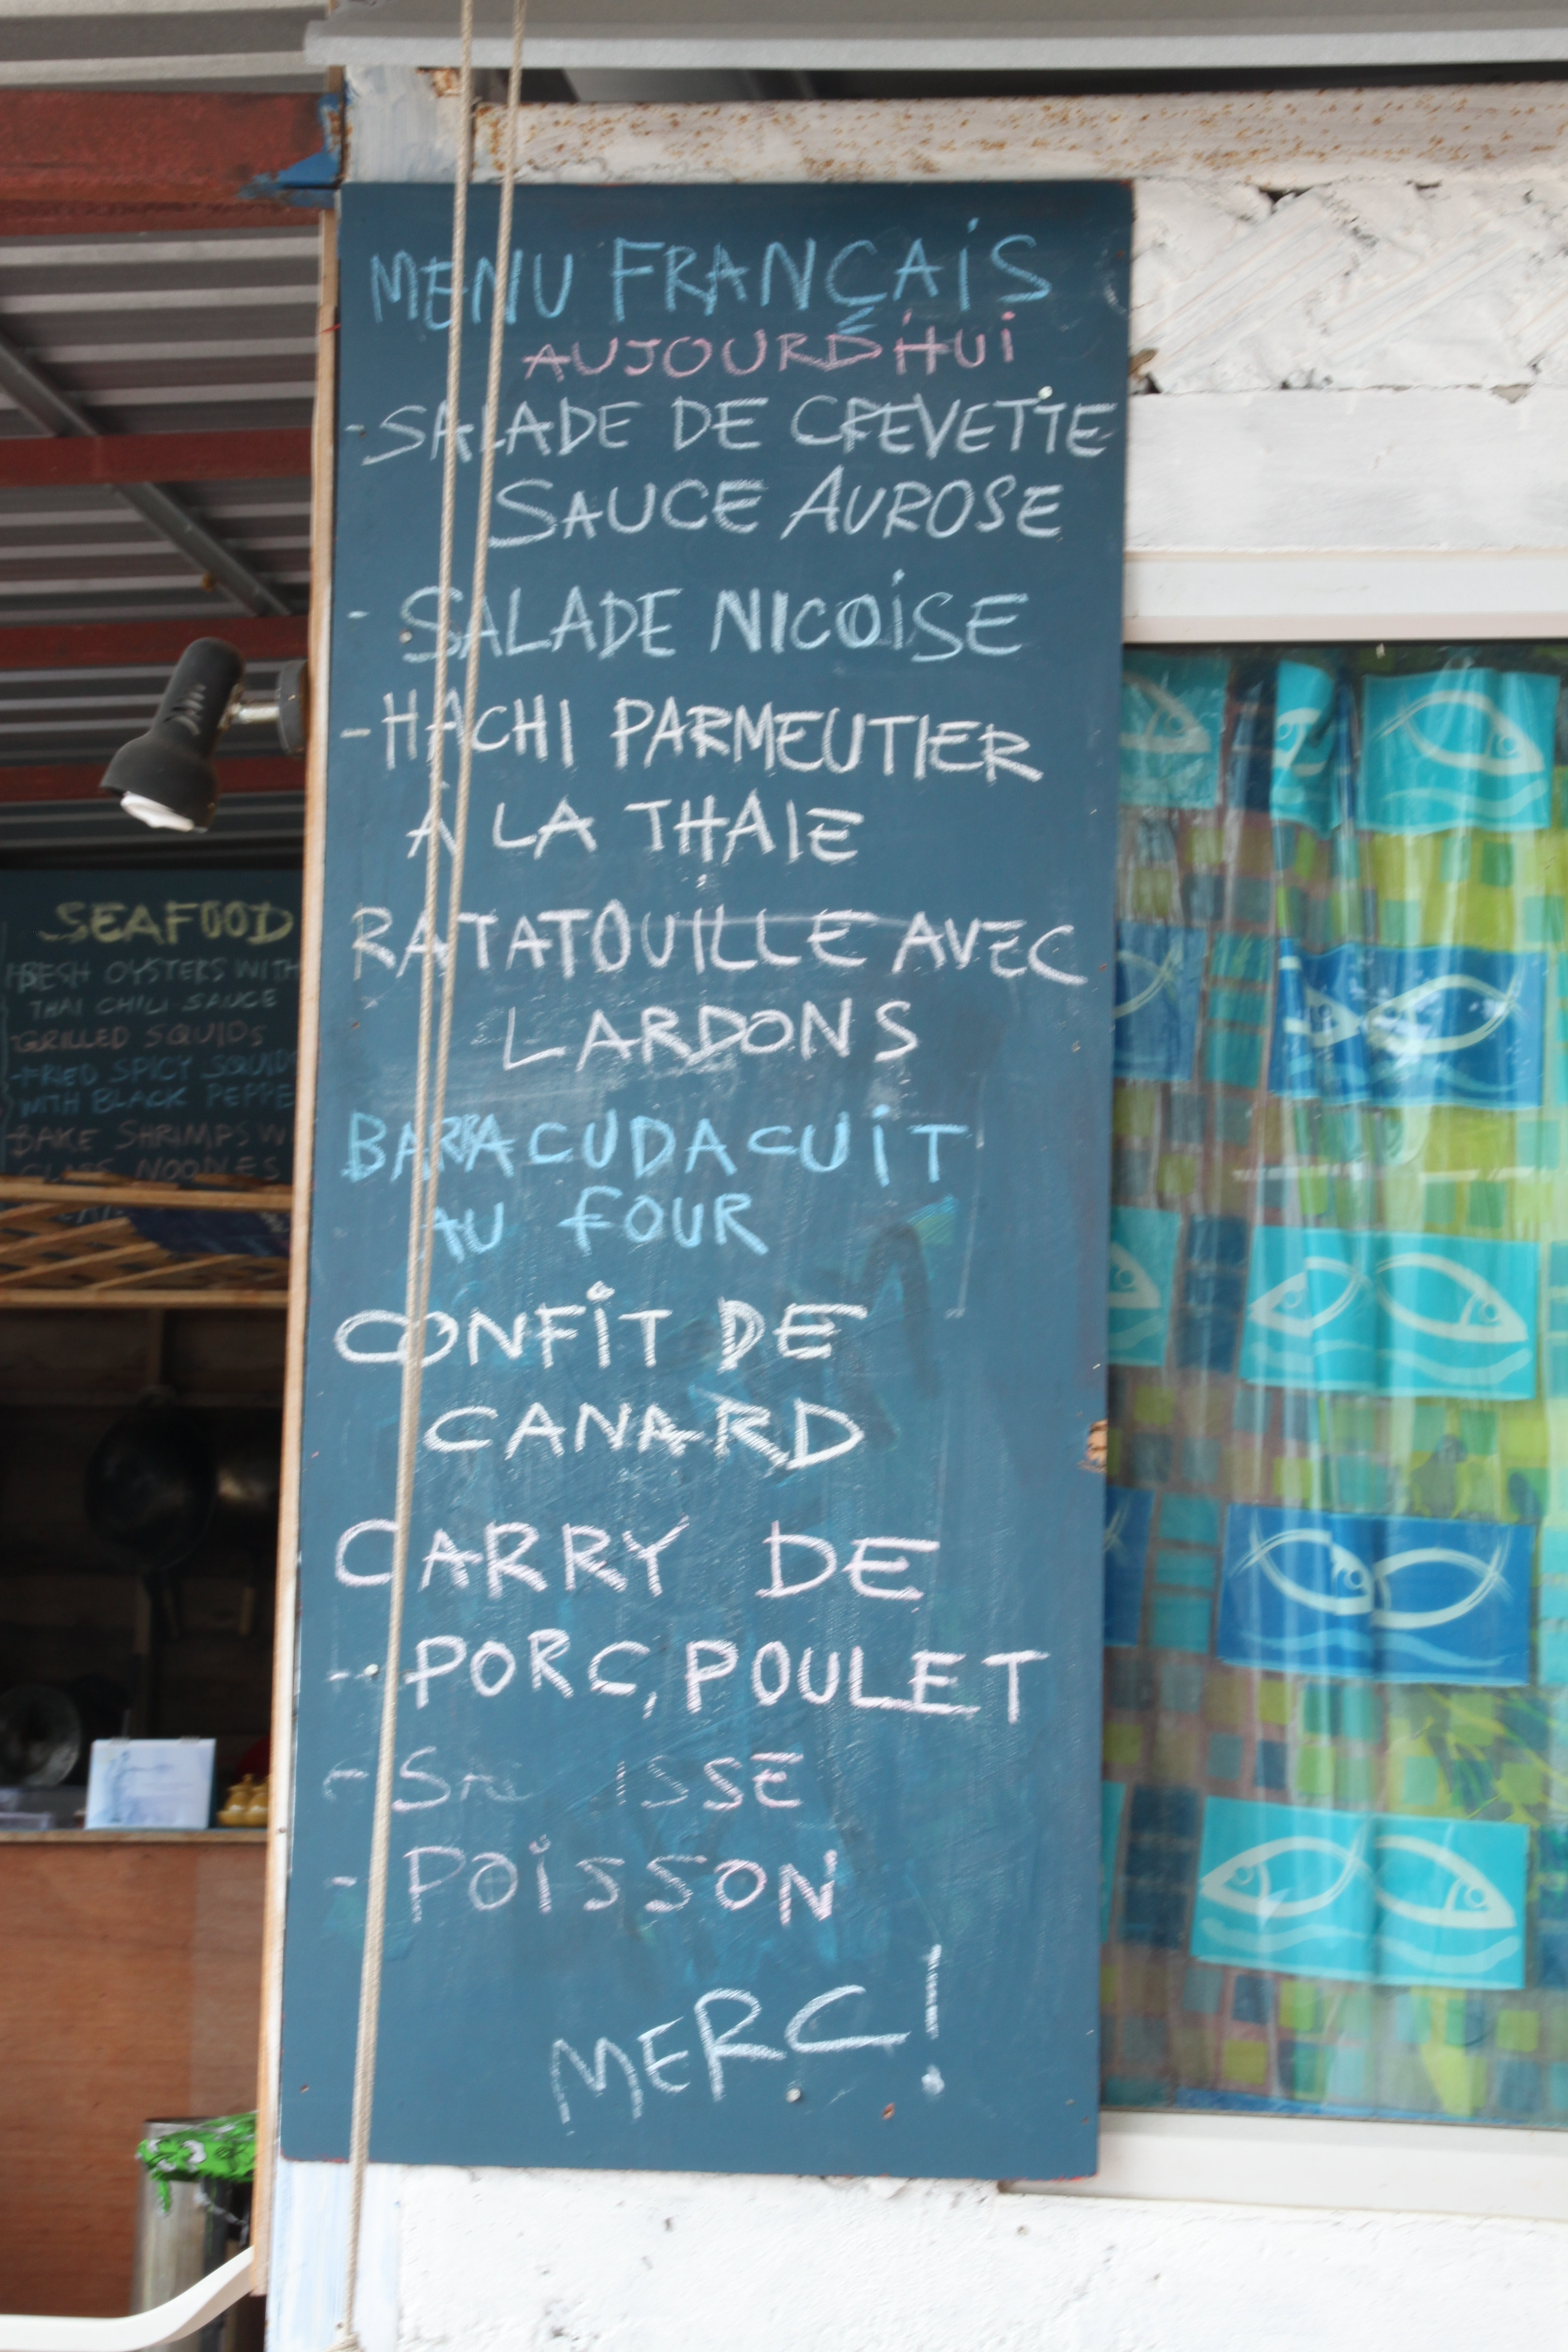 MENU FRANÇAIS
AUJOURD'HUI
- SALADE DE CREVETTE
SAUCE AUROSE
- SALADE NICOISE
- HACHI PARMEUTIER
À LA THAIE
RATATOUILLE AVEC
LARDONS
BARRACUDA CUIT
AU FOUR
CONFIT DE
CANARD
CARRY DE
-- PORC, POULET
- POISSON
MERC!
SEAFOOD
FRESH OYSTERS WITH
THAI CHILI SAUCE
GRILLED SQUIDS
-FRIED SPICY SQUIDS
WITH BLACK PEPPE
BAKE SHRIMPS W
GLASS NOODLES